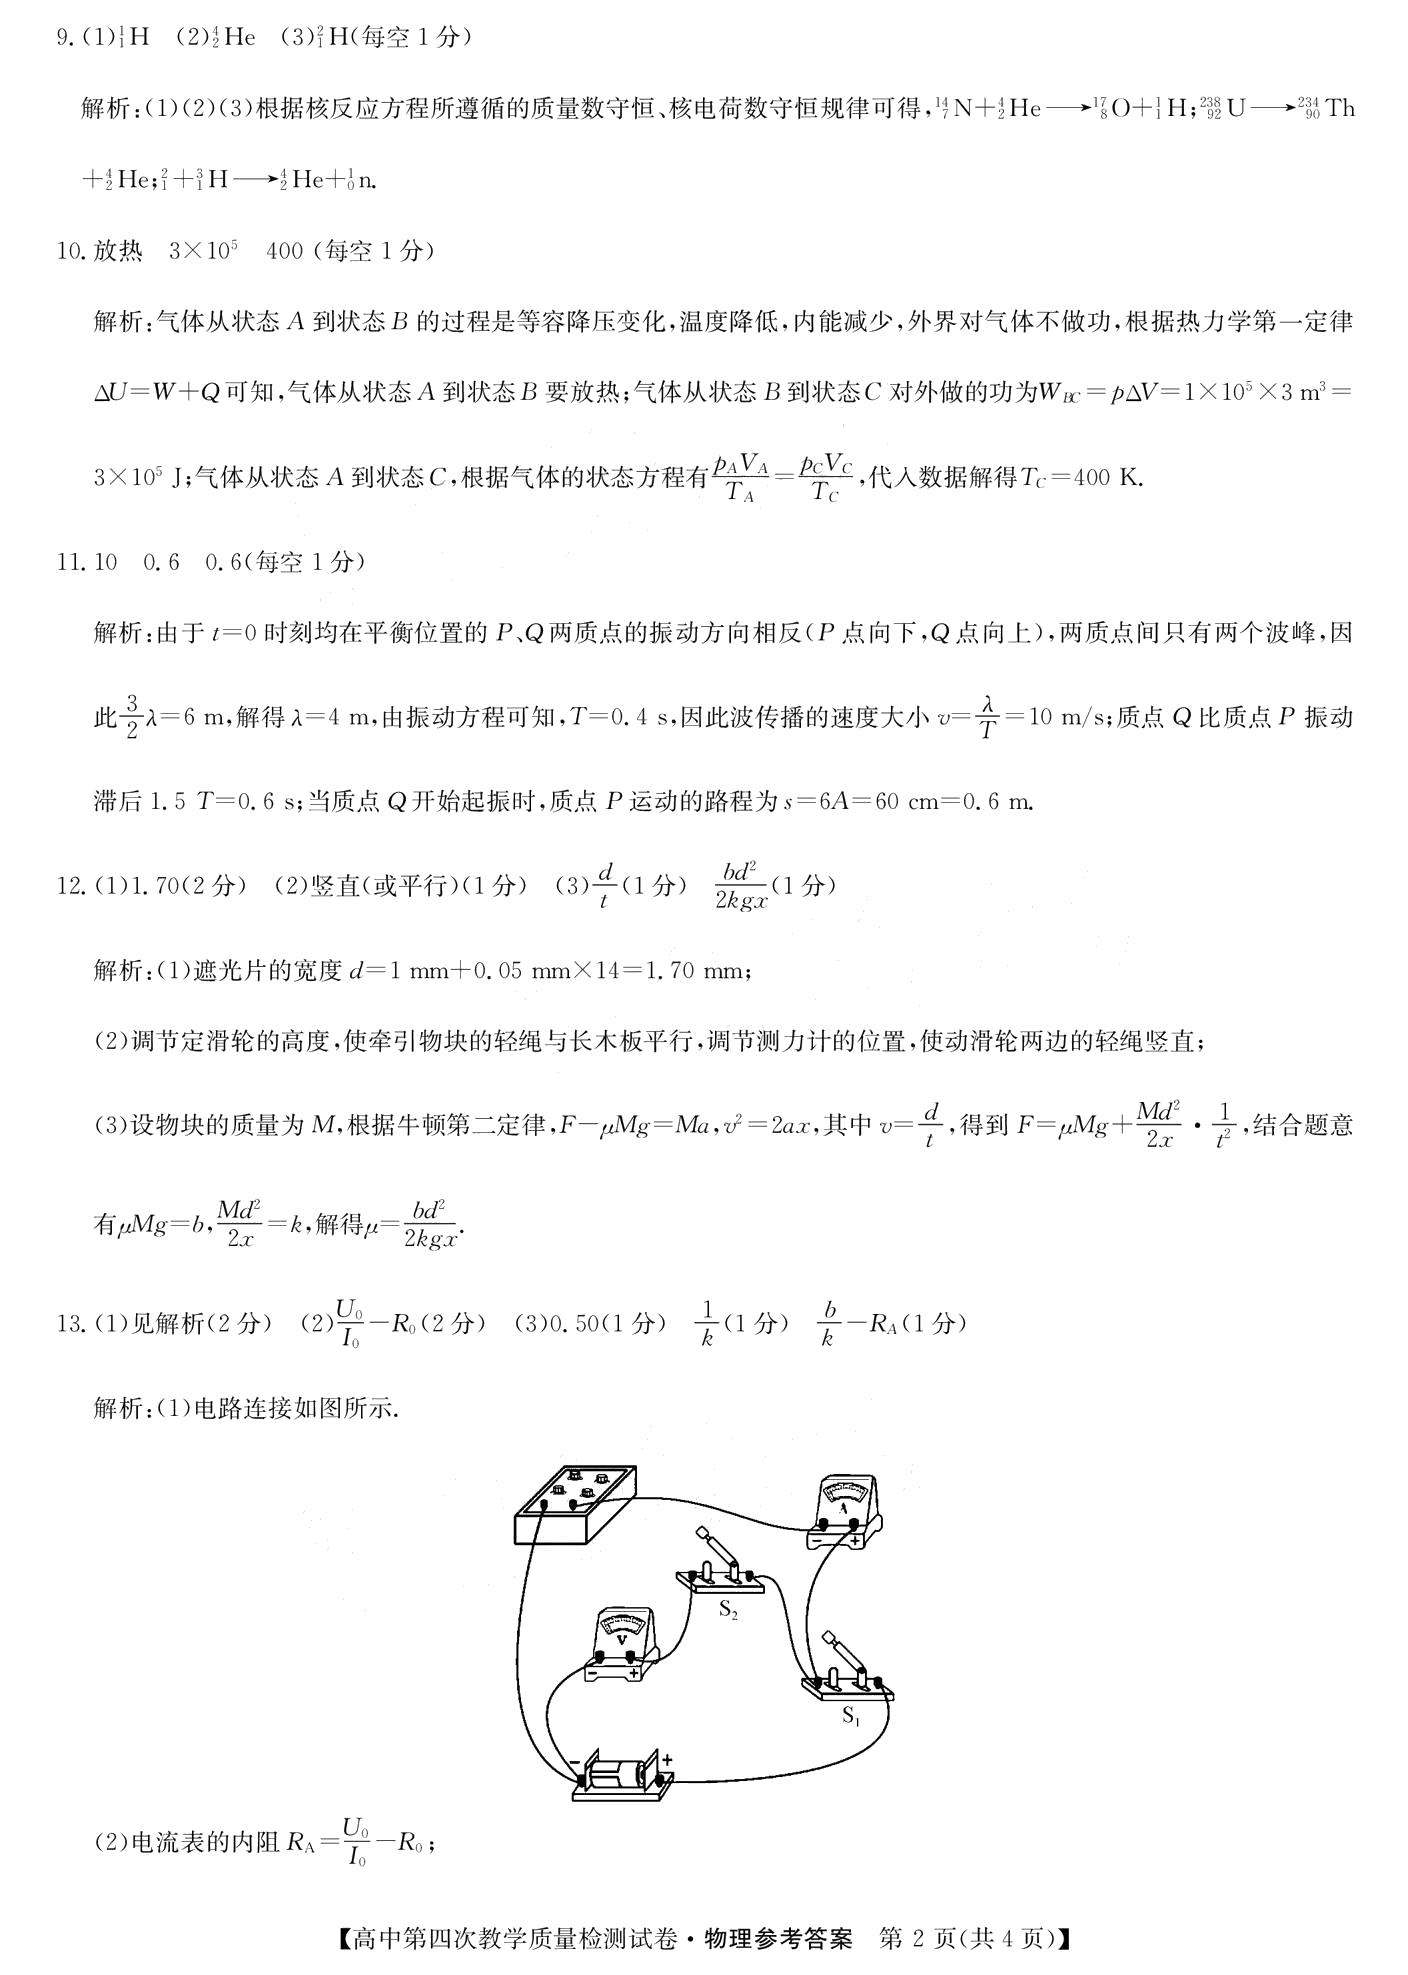 9. (1)¹₁H (2)⁴₂He (3)²₁H(每空 1 分)
解析:(1)(2)(3)根据核反应方程所遵循的质量数守恒、核电荷数守恒规律可得,¹⁴₇N+⁴₂He⟶¹⁷₈O+¹₁H;²³⁸₉₂U⟶²³⁴₉₀Th
+⁴₂He;²₁+³₁H⟶⁴₂He+¹₀n.
10. 放热 3×10⁵ 400 (每空 1 分)
解析:气体从状态 A 到状态 B 的过程是等容降压变化,温度降低,内能减少,外界对气体不做功,根据热力学第一定律
ΔU=W+Q可知,气体从状态 A 到状态 B 要放热;气体从状态 B 到状态 C 对外做的功为W_BC=pΔV=1×10⁵×3 m³=
3×10⁵ J;气体从状态 A 到状态 C,根据气体的状态方程有p_AV_A/T_A=p_CV_C/T_C,代入数据解得T_C=400 K.
11. 10 0.6 0.6(每空 1 分)
解析:由于 t=0 时刻均在平衡位置的 P、Q两质点的振动方向相反(P 点向下,Q点向上),两质点间只有两个波峰,因
此3/2λ=6 m,解得 λ=4 m,由振动方程可知,T=0.4 s,因此波传播的速度大小 v=λ/T=10 m/s;质点 Q 比质点 P 振动
滞后 1.5 T=0.6 s;当质点 Q开始起振时,质点 P 运动的路程为 s=6A=60 cm=0.6 m.
12. (1)1.70(2 分) (2)竖直(或平行)(1 分) (3)d/t(1 分) bd²/2kgx(1 分)
解析:(1)遮光片的宽度 d=1 mm+0.05 mm×14=1.70 mm;
(2)调节定滑轮的高度,使牵引物块的轻绳与长木板平行,调节测力计的位置,使动滑轮两边的轻绳竖直;
(3)设物块的质量为 M,根据牛顿第二定律,F-μMg=Ma,v²=2ax,其中 v=d/t,得到 F=μMg+Md²/2x·1/t²,结合题意
有μMg=b,Md²/2x=k,解得μ=bd²/2kgx.
13. (1)见解析(2 分) (2)U₀/I₀-R₀(2 分) (3)0.50(1 分) 1/k(1 分) b/k-R_A(1 分)
解析:(1)电路连接如图所示.
A
- +
S₂
V
- +
S₁
- +
(2)电流表的内阻 R_A=U₀/I₀-R₀;
【高中第四次教学质量检测试卷·物理参考答案 第 2 页(共 4 页)】